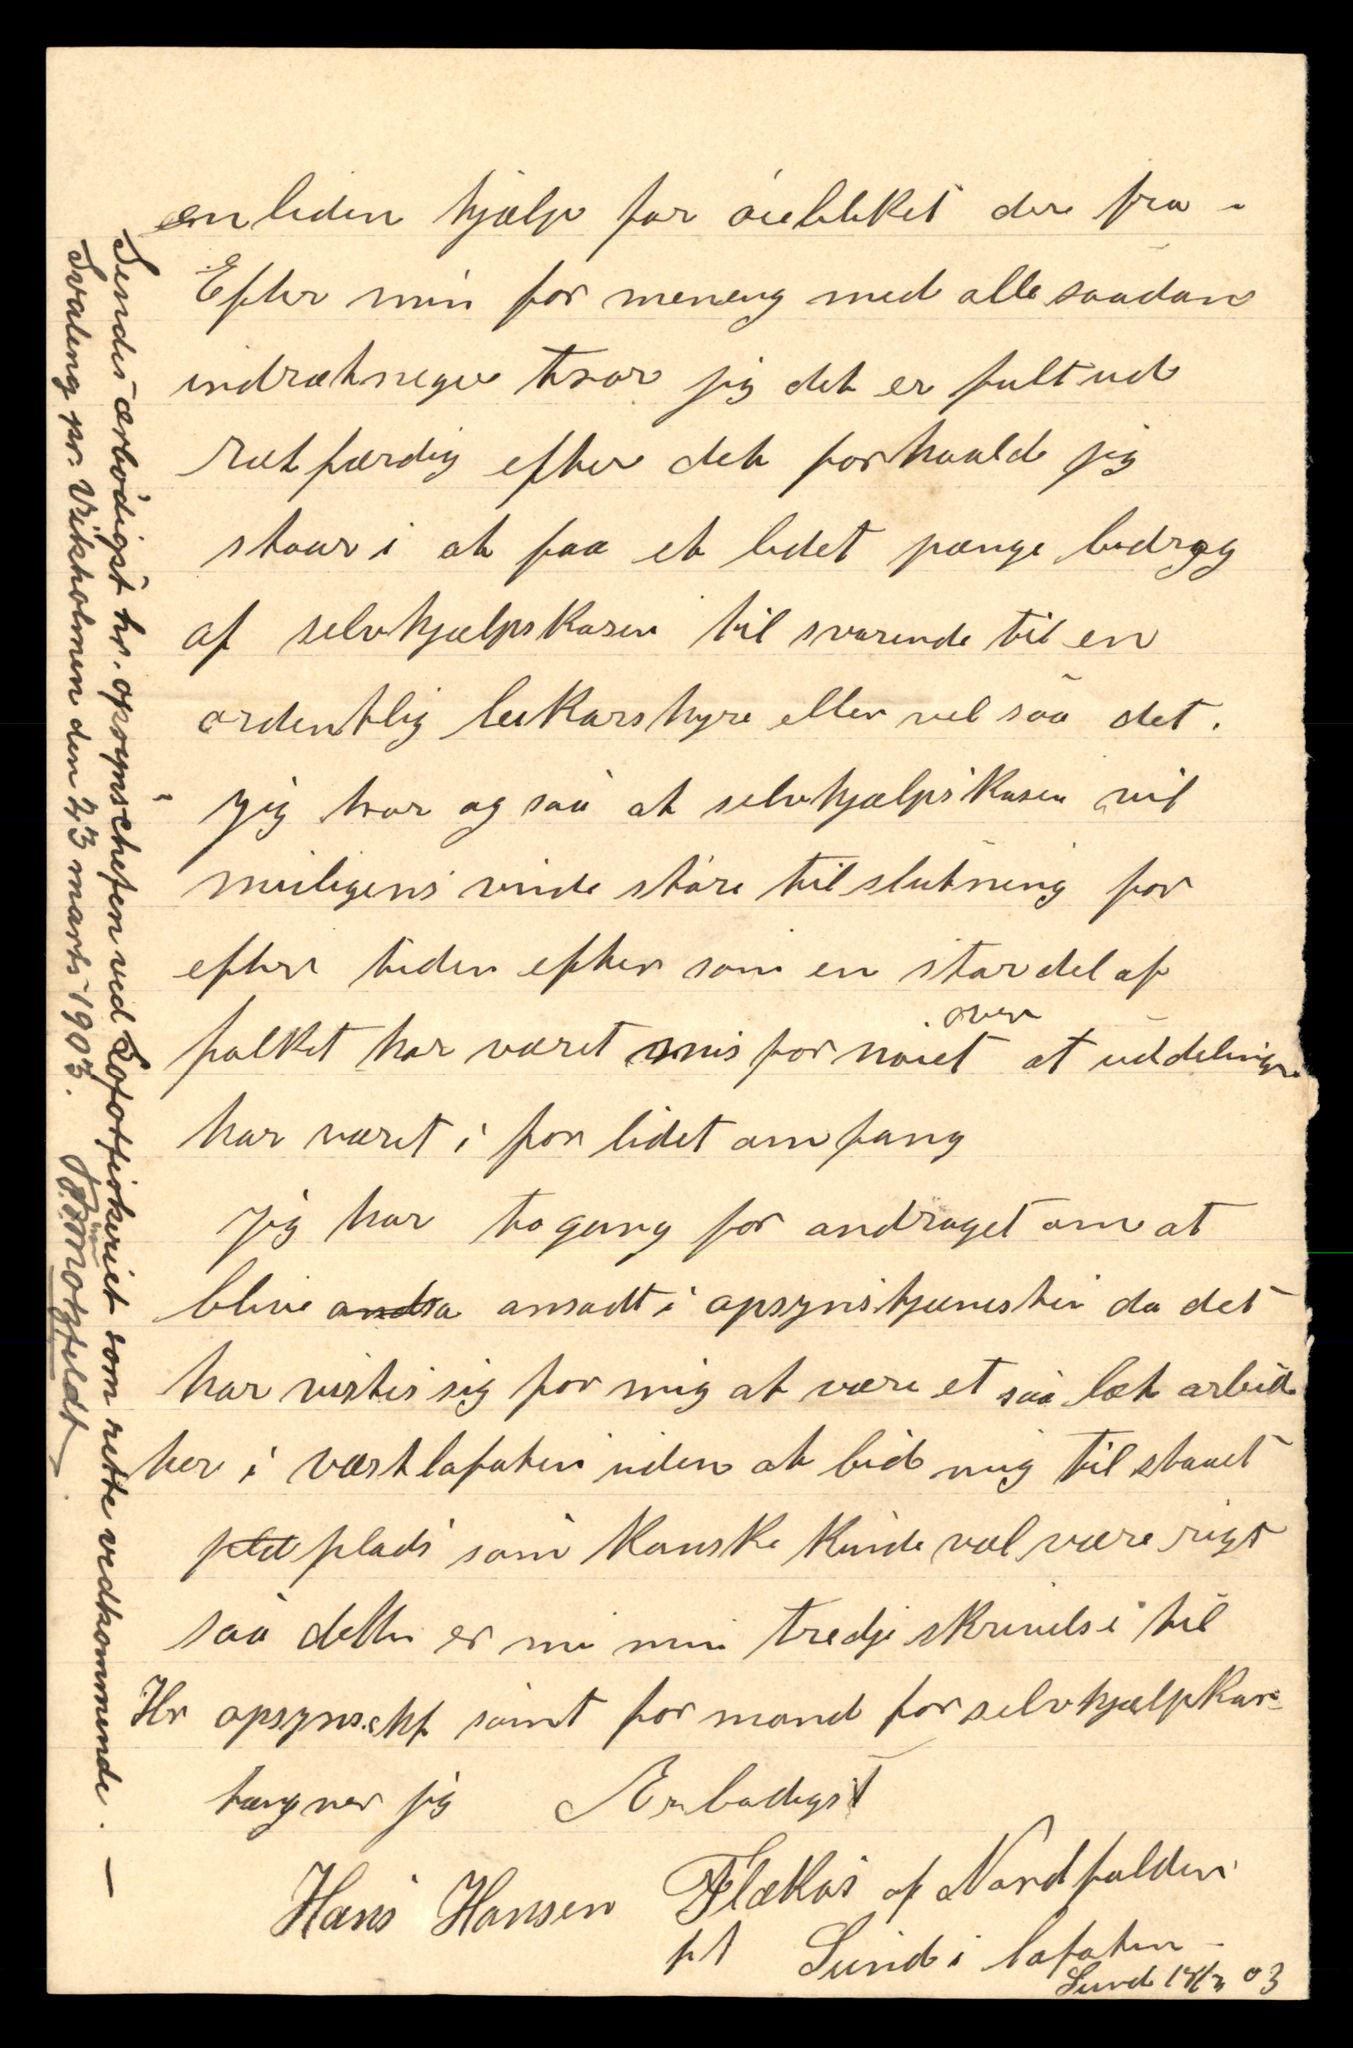 en liden hjælp for öieblikket der fra -
Efter min for mening med alle saadan
indrætneger tror jig det er fult ud
rætfærdig efter det forhaald jig
staar i at faa et lidet pænge bidrag
af selvhjælpskasen til svarende til en
ordentlig leikarshyre eller vel saa det.
Jig tror og saa at selvhjælpskasen vil
muligens vinde støre tilslutning for
efter tiden efter som en stor del af
over
folket har været misfornøiet at uddelingen
har været i for lidet omfang
Jig har to gang for andraget om at
blive andsa ansadt i opsynstjænesten da det
har vistes sig for mig at være et saa læt arbeid
her i væstlofoten uden at bid mig til staaet
plads som kanske kunde vel være rigt
saa dette er nu min tredje skrivelse til
Hr opsynschf samt formand for selvhjælpkas-
tægner jig Ærbødigst
Hans Hansen Flækøs af Nordfolden
pt Sund i lofoten -
Sund 18/3 03
Sendes ærbødigst hr. opsynschefen ved Lofotfiskeriet som rette vedkommende. —
Svaleng pr. Vikholmen den 23 marts 1903.
Motzfeldt